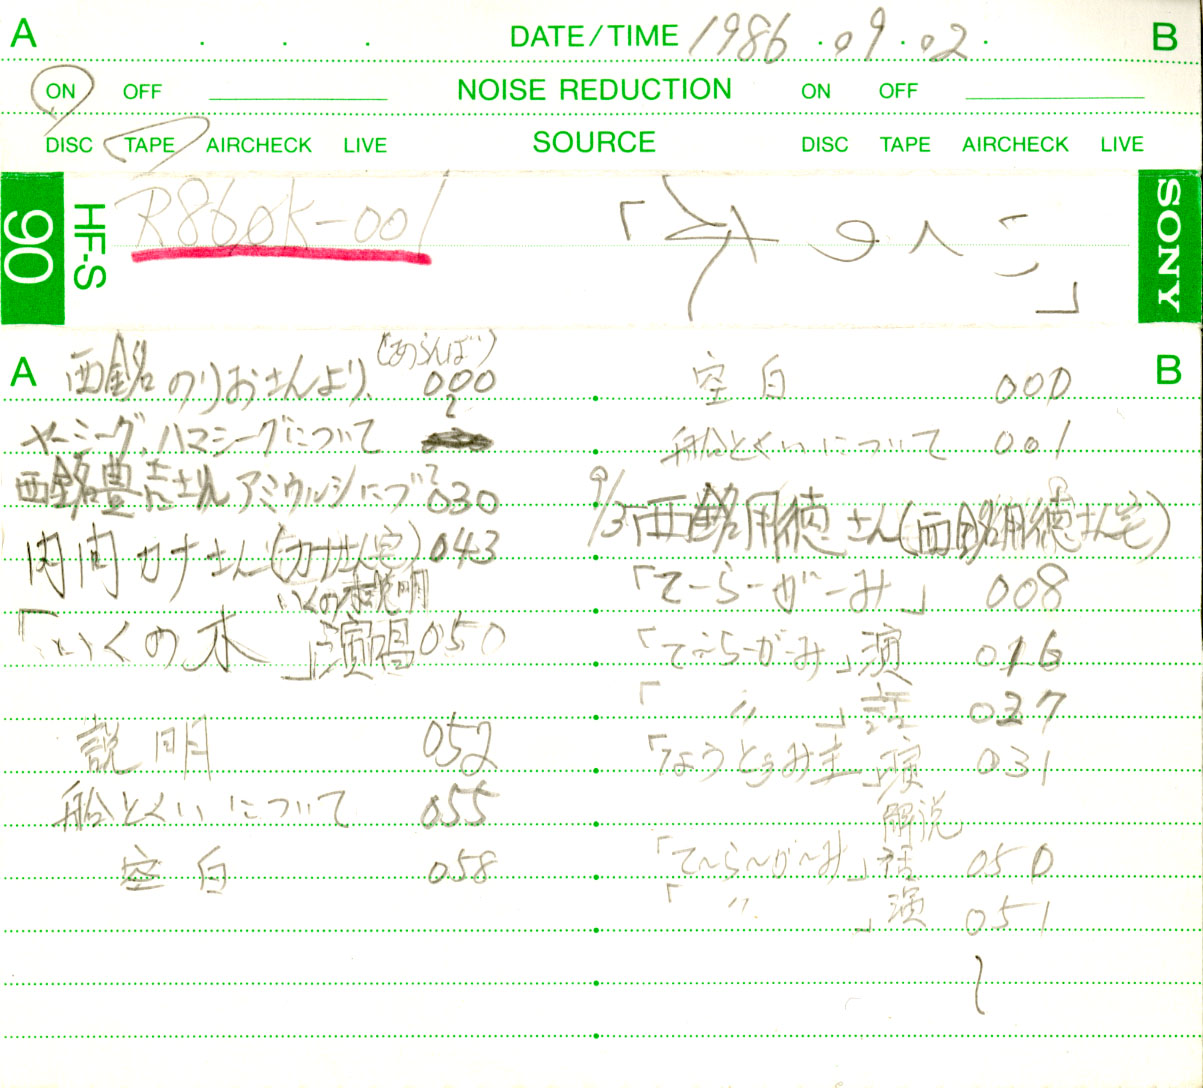 A DATE/TIME 1986.09.02. B
ON OFF NOISE REDUCTION ON OFF
DISC TAPE AIRCHECK LIVE SOURCE DISC TAPE AIRCHECK LIVE
90 HF-S R86OK-001 SONY
「いくの木」
A
西銘のりおさんより (あらんば) 000
ヤーミーグ、ハマシーグについて 2
西銘豊吉さん アミウルシにつ 030
内間カナさん(カナさん宅) 043
いくの木説明
「いくの木」演唱 050
説明 052
船とくいについて 055
空白 058
B
空白 000
船とくいについて 001
9/3 西銘用徳さん(西銘用徳さん宅)
「てーらーがーみ」 008
「てーらーがーみ」演 016
「〃」話 027
演 031
解説
「てーらーがーみ」話 050
「〃」演 051